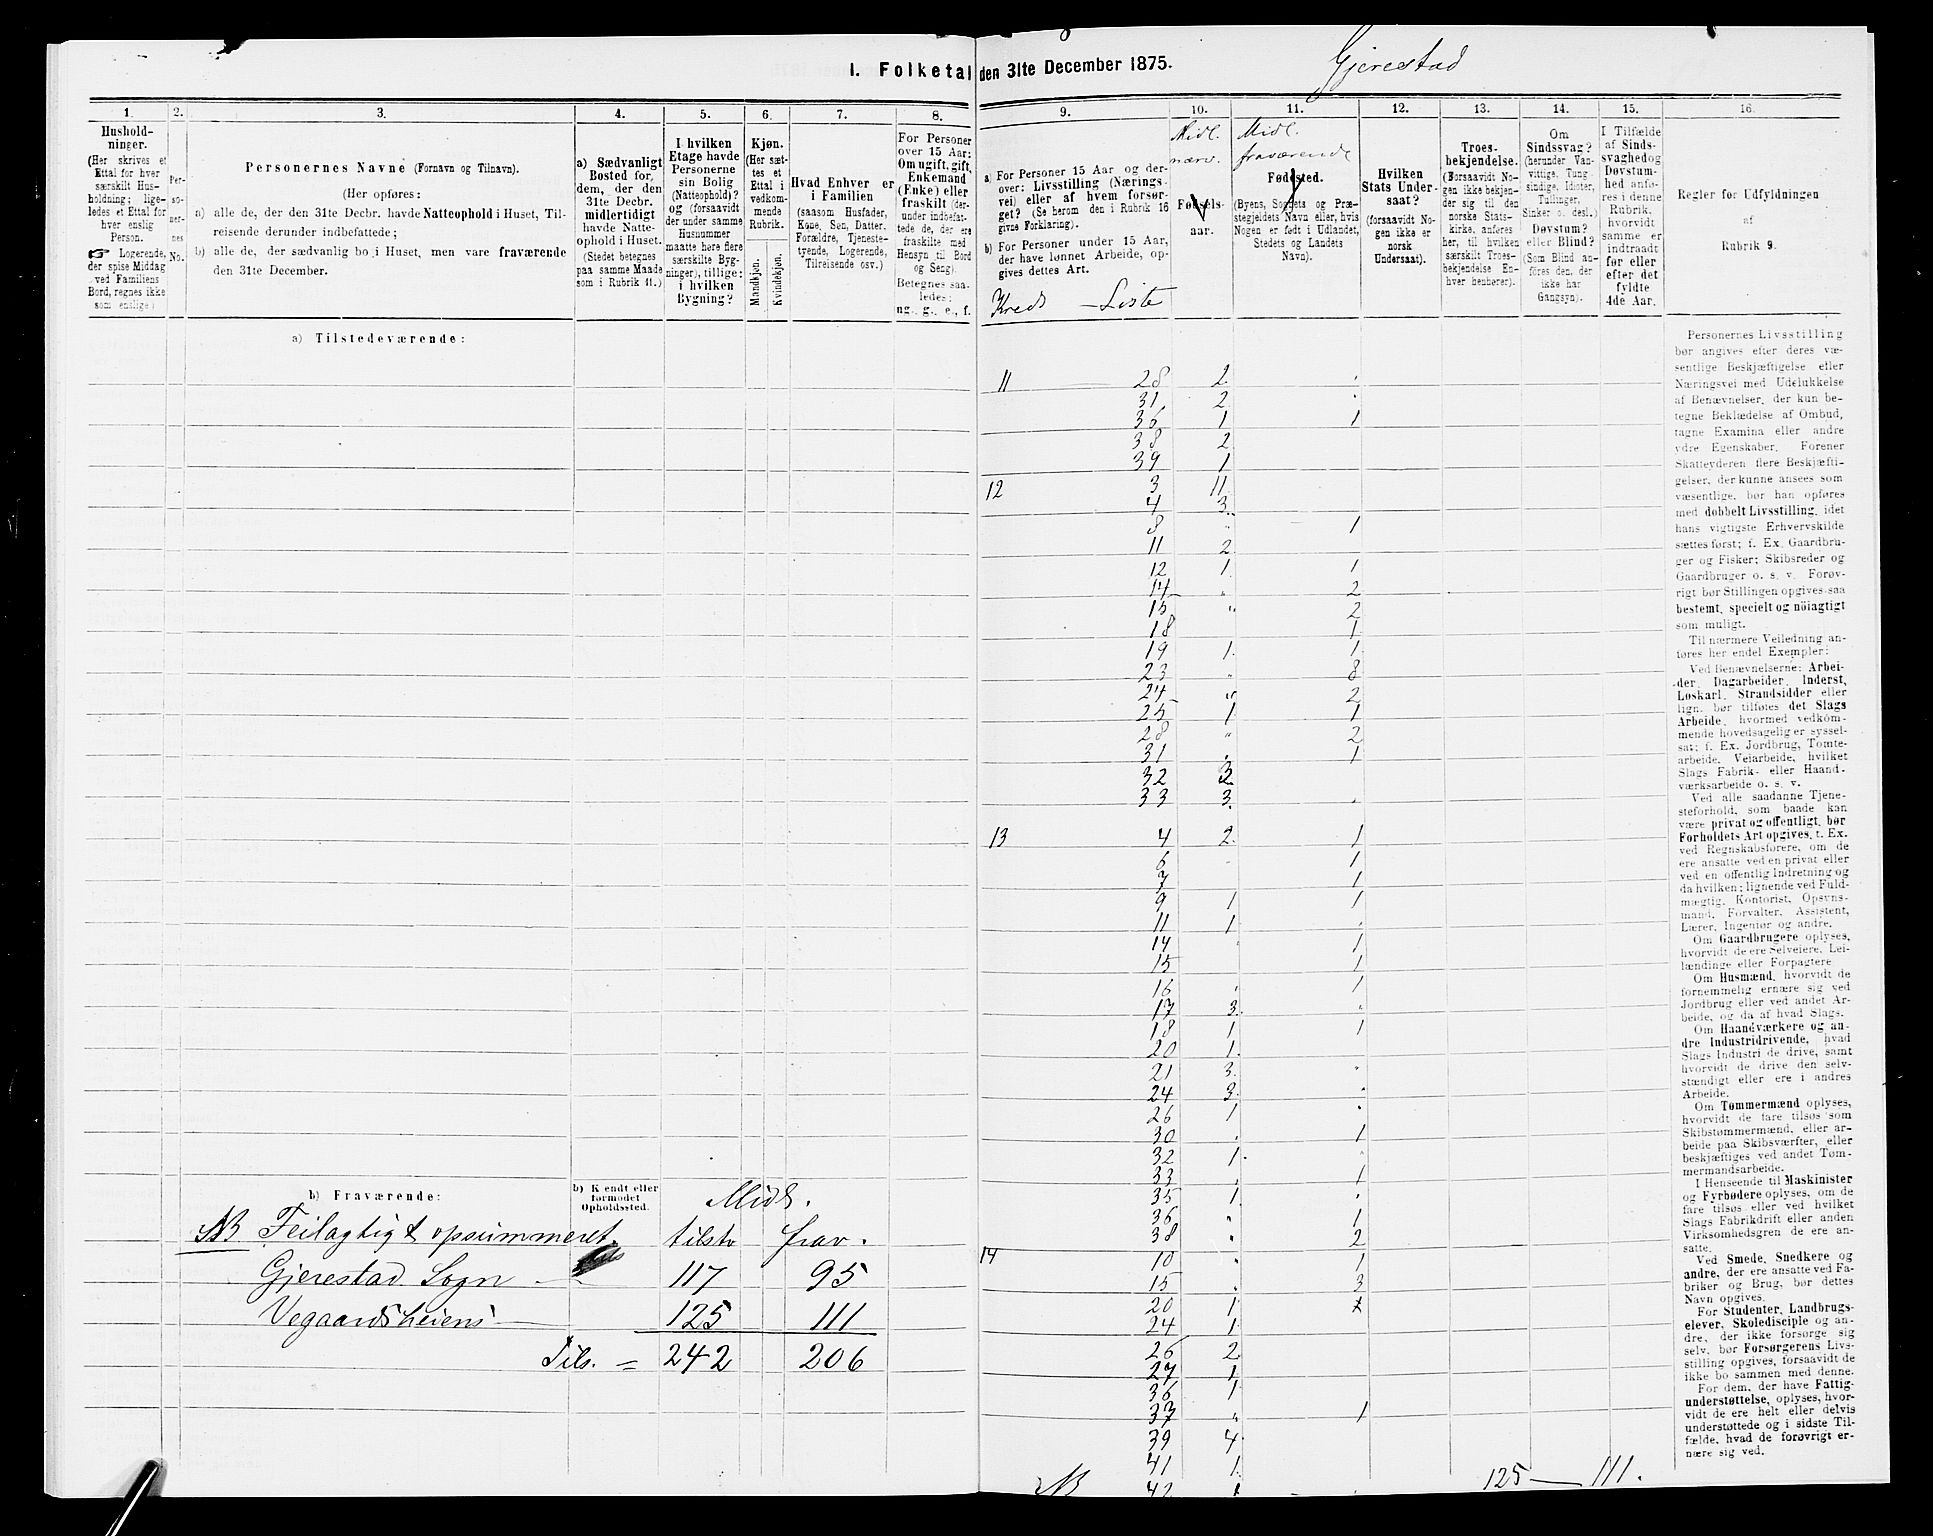 I. Folketal den 31te December 1875.
Gjerestad
1.
Husholdninger.
(Her skrives et Ettal for hver særskilt Husholdning; ligeledes et Ettal for hver enslig Person.
☛ Logerende, der spise Middag ved Familiens Bord, regnes ikke som enslige.)
2.
Personernes No.
3.
Personernes Navne (Fornavn og Tilnavn).
(Her opføres:
a) alle de, der den 31te Decbr. havde Natteophold i Huset, Tilreisende derunder indbefattede;
b) alle de, der sædvanlig bo i Huset, men vare fraværende den 31te December.
4.
a) Sædvanligt Bosted for, dem, der den 31te Decbr. midlertidigt havde Natteophold i Huset.
(Stedet betegnes paa samme Maade som i Rubrik 11.)
5.
I hvilken Etage havde Personerne sin Bolig (Natteophold)? og (forsaavidt der under samme Husnummer maatte høre flere særskilte Bygninger), tillige: i hvilken Bygning?
6.
Kjøn.
(Her sættes et Ettal i vedkommende Rubrik.
Mandkjøn.
Kvindekjøn.
7.
Hvad Enhver er i Familien
(saasom Husfader, Kone, Søn, Datter, Forældre, Tjenestetyende, Logerende, Tilreisende osv.)
8.
For Personer over 15 Aar: Om ugift, gift, Enkemand (Enke) eller fraskilt (derunder indbefattede de, der ere fraskilte med Hensyn til Bord og Seng).
Betegnes saaledes: ug., g., e., f.
9.
a) For Personer 15 Aar og derover: Livsstilling (Næringsvei) eller af hvem forsørget? (Se herom den i Rubrik 16 givne Forklaring).
b) For Personer under 15 Aar, der have lønnet Arbeide, opgives dettes Art.
Kreds — Liste
10.
Midl. nærv.
Fødselsaar.
11.
Midl. fraværende
Fødested.
(Byens, Sognets og Præstegjeldets Navn eller, hvis Nogen er født i Udlandet, Stedets og Landets Navn).
12.
Hvilken Stats Undersaat?
(forsaavidt Nogen ikke er norsk Undersaat).
13.
Troesbekjendelse.
(Forsaavidt Nogen ikke bekjender sig til den norske Statskirke, anføres her, til hvilken særskilt Troesbekjendelse Enhver henhører).
14.
Om Sindssvag? (herunder Vanvittige, Tungsindige, Idioter, Tullinger, Sinker o. desl.) Døvstum? eller Blind? (Som Blind anføres den, der ikke har Gangsyn).
15.
I Tilfælde af Sindssvaghed og Døvstumhed anføres i denne Rubrik, hvorvidt samme er indtraadt før eller efter det fyldte 4de Aar.
16.
Regler for Udfyldningen
af
Rubrik 9.
a) Tilstedeværende:
11 28 2 "
31 2 "
36 1 1
38 2
39 1
12 3 11
4 3
8 " 1
11 2
12 1 1
14 " 2
15 " 2
18 1
19 1 1
23 " 8
24 " 2
25 1 1
28 " 2
31 " 1
32 3
33 3 "
13 4 2 1
6 " 1
7 1
9 1 1
11 1 "
14 " 1
15 1
16 " 1
17 3 "
18 1 1
20 1
21 3 "
24 3 "
26 1 "
30 " 1
32 1 "
33 1
35 1 "
36 " 1
38 " 2
14 10 " 1
15 " 3
20 1
24 1
26 2
27 1
36 1
37 " 1
39 4
41 1
NB 42 1 125 — 111.
Personernes Livsstilling bør angives efter deres væsentlige Beskjæftigelse eller Næringsvei med Udelukkelse af Benævnelser, der kun betegne Beklædelse af Ombud, tagne Examina eller andre ydre Egenskaber. Forener Skatteyderen flere Beskjæftigelser, der kunne ansees som væsentlige, bør han opføres med dobbelt Livsstilling, idet hans vigtigste Erhvervskilde sættes først; f. Ex. Gaardbruger og Fisker; Skibsreder og Gaardbruger o. s. v. Forøvrigt bør Stillingen opgives saa bestemt, specielt og nöiagtigt som muligt.
Til nærmere Veiledning anføres her endel Exempler:
Ved Benævnelserne: Arbeider, Dagarbeider, Inderst, Løskarl, Strandsidder eller lign. bør tilføies det Slags Arbeide, hvormed vedkommende hovedsagelig er sysselsat; f. Ex. Jordbrug, Tomtearbeide, Veiarbeide, hvilket Slags Fabrik- eller Haandværksarbeide o. s. v.
Ved alle saadanne Tjenesteforhold, som baade kan være privat og offentligt, bør Forholdets Art opgives, t. Ex. ved Regnskabsførere, om de ere ansatte ved en privat eller ved en offentlig Indretning og da hvilken; lignende ved Fuldmægtig, Kontorist, Opsynsmand, Forvalter, Assistent, Lærer, Ingeniør og andre.
Om Gaardbrugere oplyses, hvorvidt de ere Selveiere, Leilændinge eller Forpagtere
Om Husmænd, hvorvidt de fornemmelig ernære sig ved Jordbrug eller ved andet Arbeide, og da af hvad Slags.
Om Haandværkere og andre Industridrivende, hvad Slags Industri de drive, samt hvorvidt de drive den selvstændigt eller ere i andres Arbeide.
Om Tømmermænd oplyses, hvorvidt de fare tilsøs som Skibstømmermænd, eller arbeide paa Skibsværfter, eller beskjæftiges ved andet Tømmermandsarbeide.
I Henseende til Maskinister og Fyrbødere oplyses, om de fare tilsøs eller ved hvilket Slags Fabrikdrift eller anden Virksomhedsgren de ere ansatte.
Ved Smede, Snedkere og andre, der ere ansatte ved Fabriker og Brug, bør dettes Navn opgives.
For Studenter, Landbrugselever, Skoledisciple og andre, der ikke forsørge sig selv, bør Forsørgerens Livsstilling opgives, forsaavidt de ikke bo sammen med denne.
For dem, der have Fattigunderstøttelse, oplyses, hvorvidt de ere helt eller delvis understøttede og i sidste Tilfælde, hvad de forøvrigt ernære sig ved.
b) Fraværende:
b) Kjendt eller formodet Opholdssted.
Midl.
NB Feilagtigt opsummeret tilstv frav.
Gjerestad Sogn — 117 95
Vegaardsheiens — 125 111
Tils. = 242 206